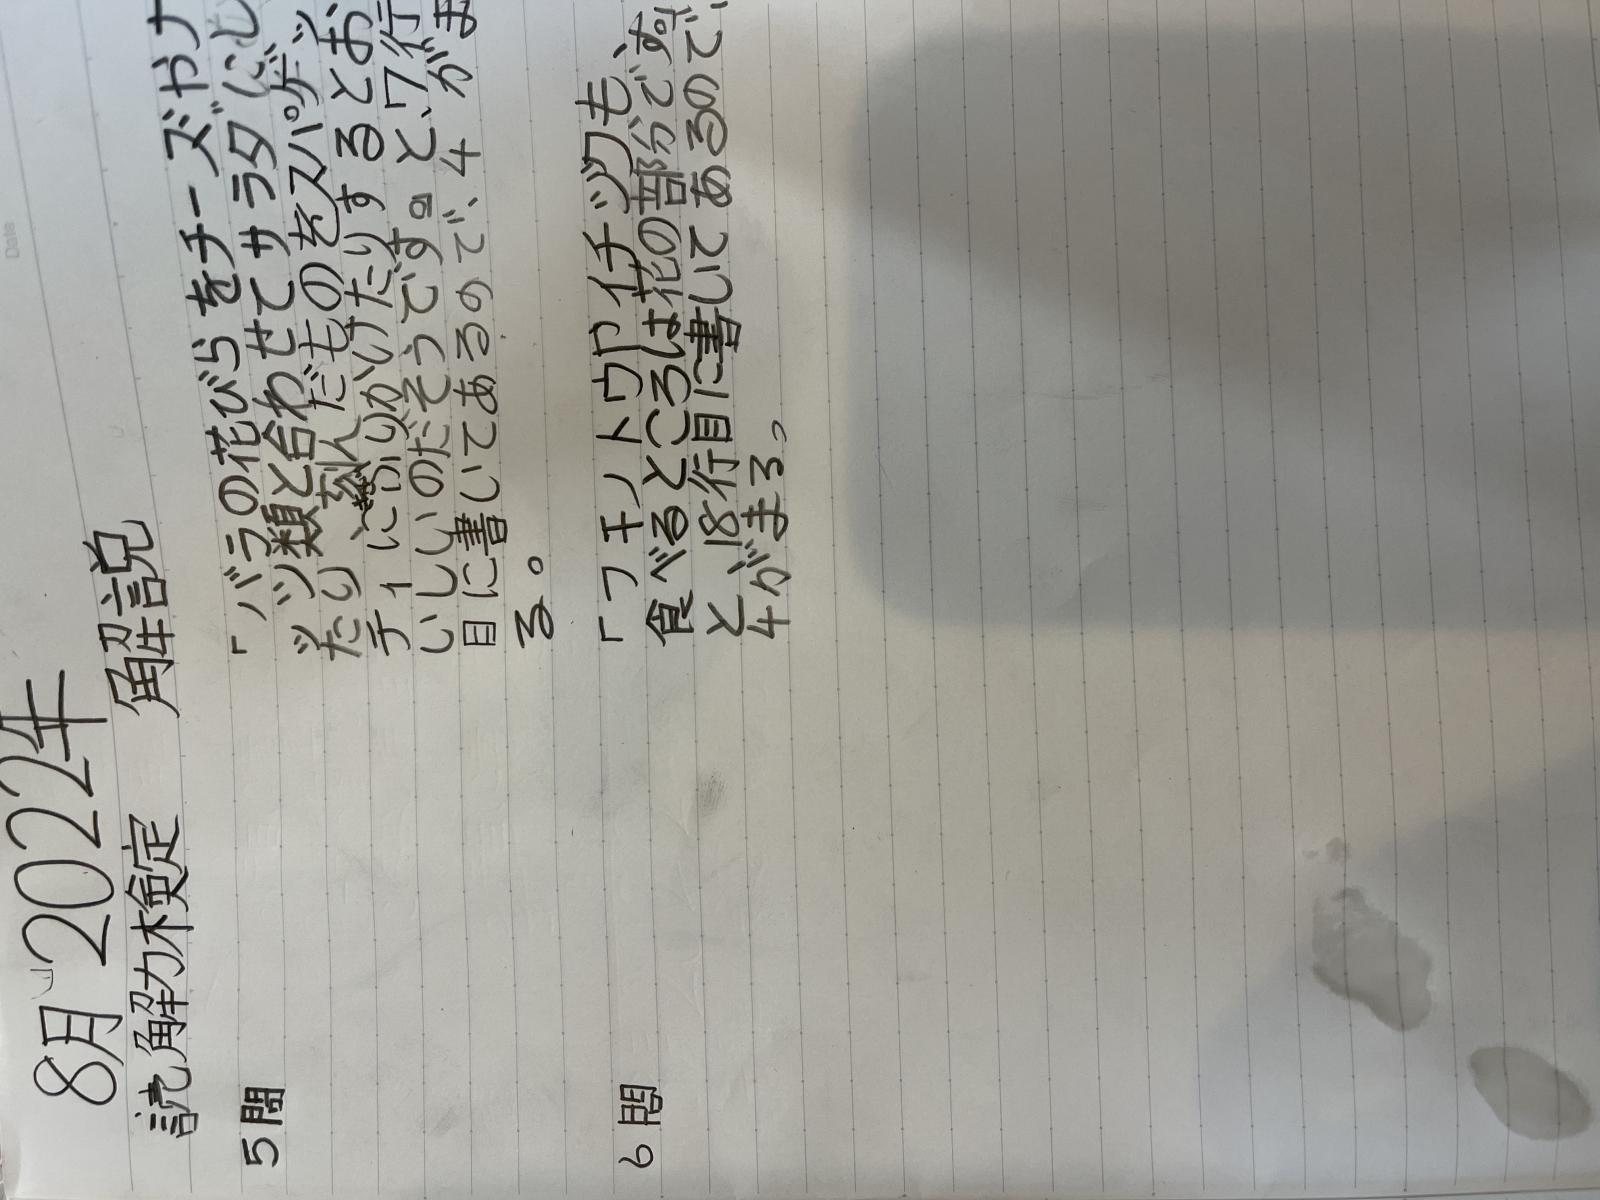 Date
8月 2022年
読解力検定 解説
5問
「バラの花びらをチーズやナ
ッツ類と合わせてサラダにし
たり、刻んだものをスパゲッ
ティにふりかけたりするとお
いしいのだそうです。」と、7行
目に書いてあるので、4がま
る。
6問
「フキノトウやイチジクも、
食べるところは花の部分です。」
と、18行目に書いてあるので、
4がまる。